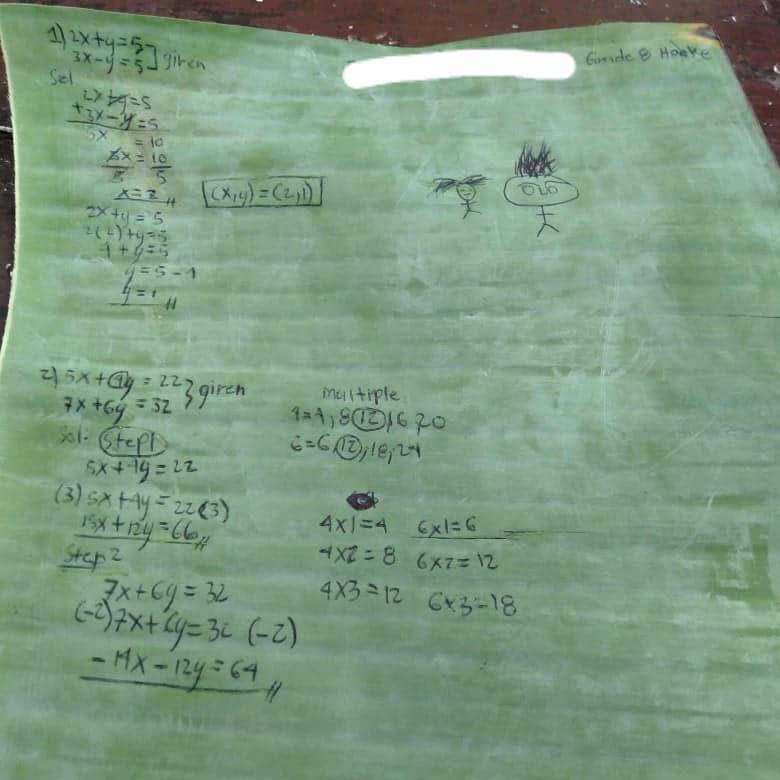 1) 2x+y=5
3x-y=5 ] given
Sol
2x+y=5
+3x-y=5
5x = 10
5x = 10
5 5
x=2
(x,y)=(2,1)
2x+y=5
2(2)+y=5
4+y=5
y=5-4
y=1
Grade 8
2) 5x+4y=22
7x+6y=32 } given
Sol. Step1
5x+4y=22
(3)5x+4y=22(3)
15x+12y=66
Step 2
7x+6y=32
(-2)7x+6y=32(-2)
-14x-12y=64
multiple
4=4,8,12,16,20
6=6,12,18,24
4x1=4 6x1=6
4x2=8 6x2=12
4x3=12 6x3=18